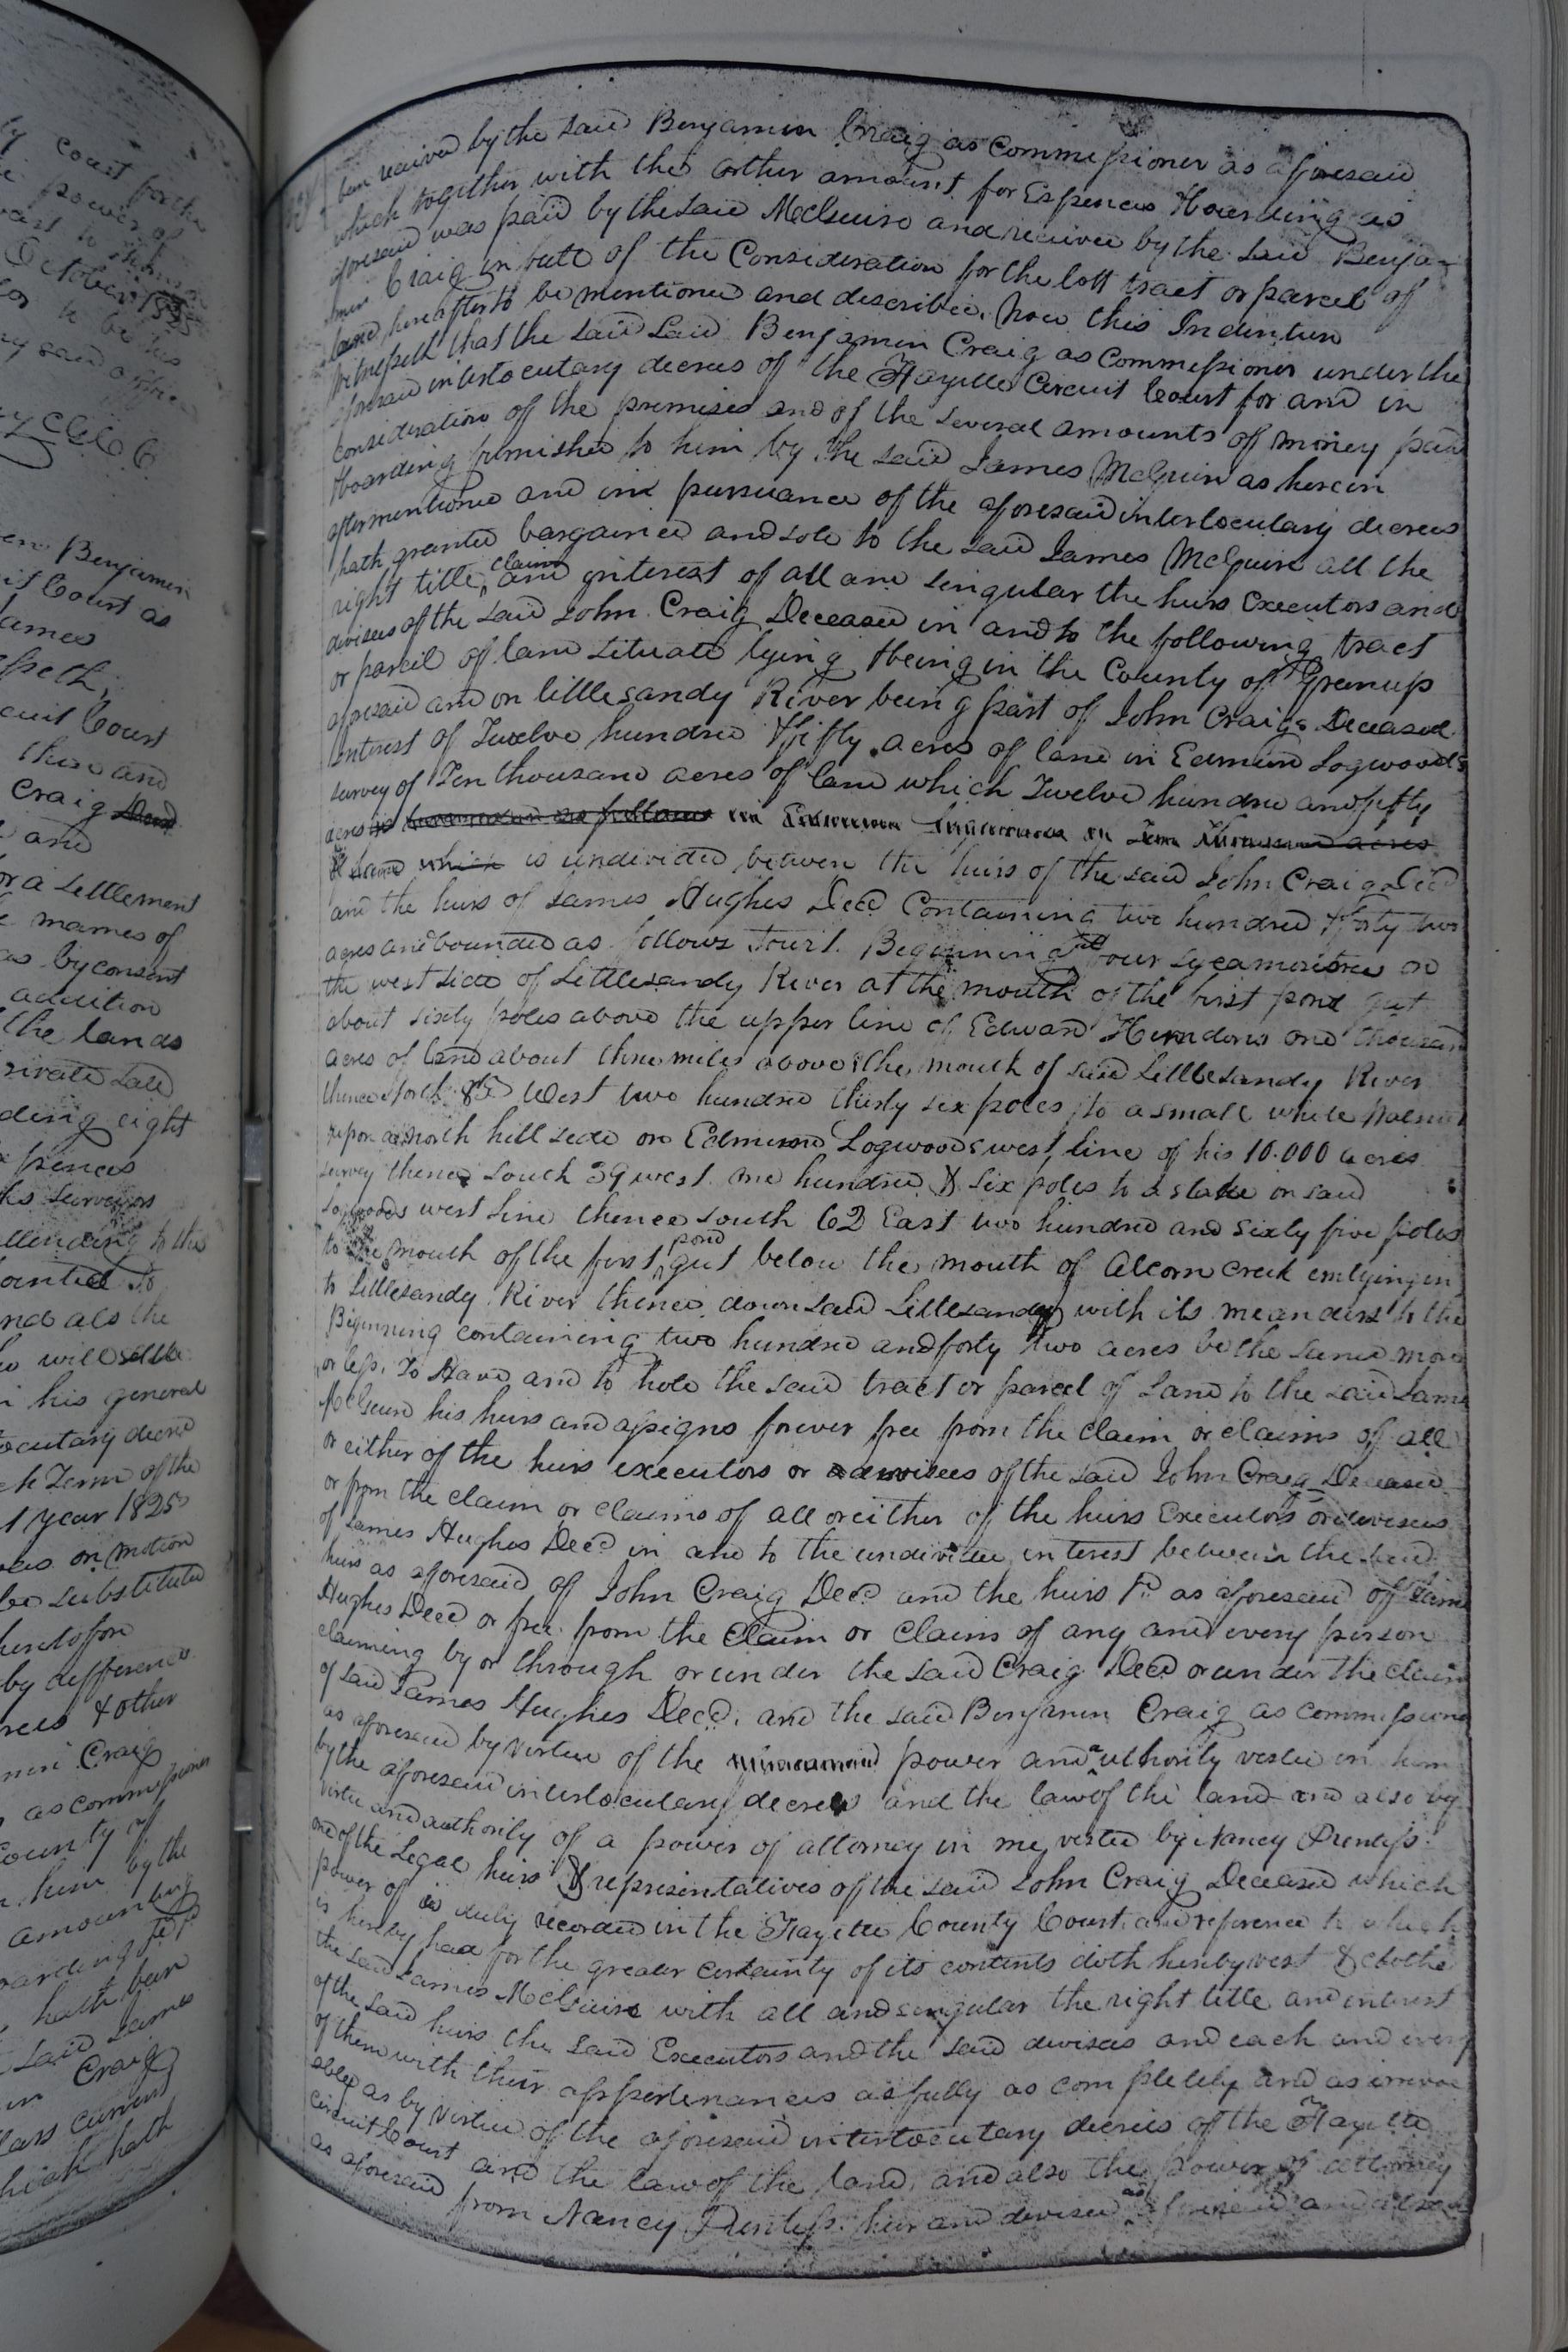 ly Court for the
power of
October 1825
to be his
my said office
CGCC
Benjamin
it Court as
James
seth,
cuit Court
then and
Craig Decd
and
or a settlement
names of
as by consent
addition
the lands
private sale
ding eight
pences
his surveyors
attending to the
ointed to
and als the
his general
ocutary decree
ch Term of the
year 1825
on motion
be substituted
heretofore
by difference
& other
min Craig
as commissioner
County of
him by the
amounting
hath been
said James
Craig
ars current
which hath
ben received by the said Benjamin Craig as Commissioner as aforesaid
which together with the other amount for Expences & boarding as
aforesaid was paid by the said McGuire and received by the said Benja-
min Craig in full of the Consideration for the lott tract or parcel of
land hereafter to be mentioned and described. Now this Indenture
Witnesseth that the said said Benjamin Craig as Commissioner under the
aforesaid interlocutary decrees of the Fayette Circuit Court for and in
consideration of the premises and of the several amounts of money paid
& boarding furnished to him by the said James McGuire as herein
after mentioned and in pursuance of the aforesaid interlocutary decrees
hath granted bargained and sold to the said James McGuire all the
right title, claim and interest of all and singular the heirs Executors and
devisees of the said John Craig Deceased in and to the following tract
or parcel of land situate lying & being in the County of Greenup
aforesaid and on little sandy River being part of John Craigs Deceased
interest of Twelve hundred & fifty acres of land in Edmund Logwoods
survey of Ten thousand acres of land which Twelve hundred and fifty
acres is as follows in Ten Thousand acres
of land which is undivided between the heirs of the said John Craig Decd
and the heirs of James Hughes Decd Containing two hundred & forty two
acres and bounded as follows Towit. Beginning at four sycamoretrees on
the west side of Littlesandy River at the mouth of the first pond gut
about sixty poles above the upper line of Edward Herndons one thousand
acres of land about three miles above the mouth of said Littlesandy River
thence North West two hundred thirty six poles to a small white Walnut
upon a north hill side on Edmund Logwoods west line of his 10.000 acres
survey thence south 39 west one hundred & six poles to a stake on said
Logwoods west line thence south 62 East two hundred and sixty five poles
to the mouth of the first pond gut below the mouth of Alcorn Creek emtying in
to Littlesandy River thence down said Littlesandy with its meanders to the
Beginning containing two hundred and forty two acres be the same more
or less. To Have and to hold the said tract or parcel of Land to the said James
McGuire his heirs and assigns forever free from the claim or claims of all
or either of the heirs executors or devisees of the said John Craig Deceased
or from the claim or claims of all or either of the heirs Executors or devisees
of James Hughes Decd in and to the undivided interest between the said
heirs as aforesaid of John Craig Decd and the heirs as aforesaid of James
Hughes Decd or free from the Claim or Claims of any and every person
claiming by or through or under the said Craig Decd or under the claim
of said James Hughes Decd, and the said Benjamin Craig as commissione
as aforesaid by virtue of the power and authority vested in him
by the aforesaid interlocutary decrees and the law of the land and also by
virtue and authority of a power of attorney in me, vested by Nancy Prentiss
one of the Legal heirs & representatives of the said John Craig Deceased which
power of is duly recorded in the Fayette County Court and reference to which
is hereby had for the greater certainty of its contents doth hereby vest & clothe
the said James McGuire with all and singular the right title and interest
of the said heirs the said Executors and the said devisees and each and every
of them with their appertenances as fully as completely and as irrevoc
ably as by virtue of the aforesaid interlocutary decrees of the Fayette
circuit Court and the law of the land, and also the power of attorney
as aforesaid from Nancy Prentiss heir and devisee as aforesaid and also